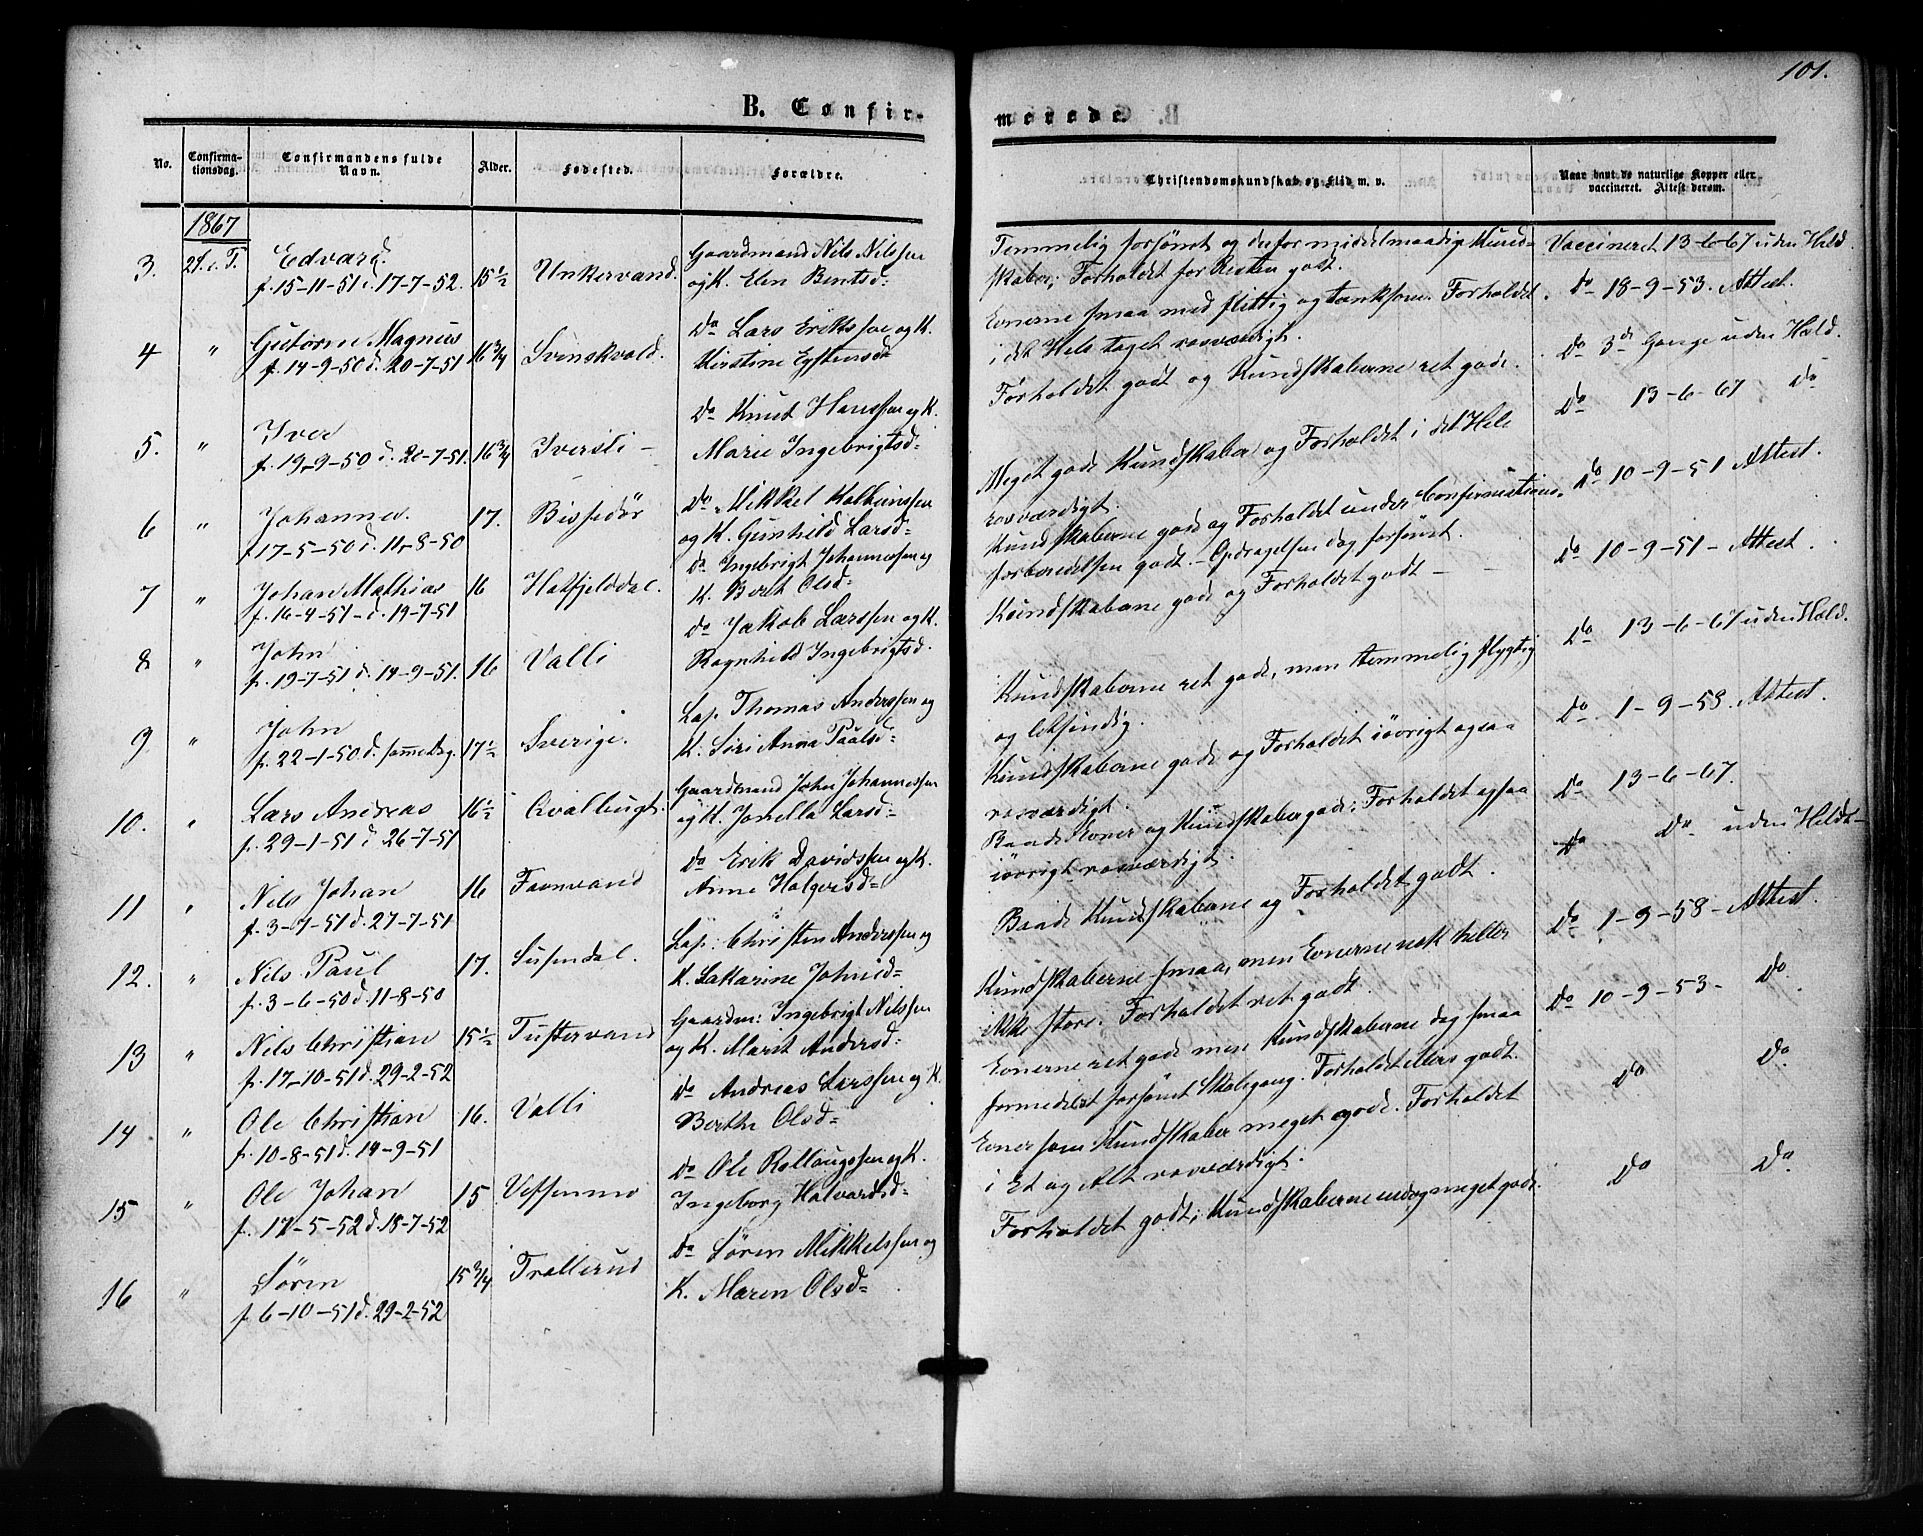 101.
B. Confir-
merede
No.
Confirma-
tionsdag.
Confirmandens fulde
Navn.
Alder.
Fødested.
Forældre.
Christendomskundskab og Flid m. v.
Naar havt de naturlige Kopper eller
vaccineret. Attest derom.
1867
3. 2 S. e. T. Edvard 15½ Unkervand. Gaardmand Nils Nilssen
f. 15-11-51 d. 17-7-52. og K. Elen Bentsd=
Temmelig forsømt og derfor middelmaadige Kund-
skaber; Forholdet for Resten godt.
Vaccineret 13-6-67 uden Held.
4 " Gutorm Magnus 16¾ Svenskvold. Do Lars Erikssen og K.
f. 14-9-50 d. 20-7-51 Kirstine Eystensd=
Evnerne smaa med flittig og tænksom. Forholdet
i det Hele taget rosværdigt.
Do 18-9-53. Attest.
5. " Iver 16¾ Iversli - Do Knud Hanssen og K.
f. 19-9-50 d. 20-7-51. Marie Ingebrigtsd=
Forholdet godt og Kundskaberne ret gode.
Do 3de Gange uden Held.
6 " Johannes. 17. Bissedør Do Mikkel
f 17-5-50 d. 11-8-50 og K. Gunhild Larsd=
Meget gode Kundskaber og Forholdet i det Hele
rosværdigt.
Do 13-6-67 Do
7 " Johan Mathias 16 Hatfjelddal. Do Ingebrigt Johannessen og
f. 16-4-51 - d. 19-7-51 K. Berit Olsd=
Kundskaberne gode og Forholdet under Confirmations-
forberedelsen godt. - Opdragelsen dog forsømt.
Do 10-9-51 Attest.
8 " John 16 Valli Do Jakob Larssen og K.
f. 19-7-51 d. 14-9-51. Ragnhild Ingebrigtsd.
Kundskaberne gode og Forholdet godt -
Do 10-9-51 - Attest.
9 " John 17½ Sverige. Lap. Thomas Anderssen og
f. 22-1-50 d. samme Dag. K. Siri Anna Paalsd=
Kundskaberne ret gode, men temmelig flygtig
og letsindig.
Do 13-6-67 uden Held.
10. " Lars Andreas 16½ Qvalbugt. Gaardmand John Johannessen
f. 29-1-51 d 26-7-51 og K. Jonella Larsd=
Kundskaberne gode og Forholdet iøvrigt ogsaa
rosværdigt.
Do 1-9-58. Attest.
11 " Nils Johan 16 Famvand Do Erik Davidssen og K.
f. 3-7-51 d. 27-7-51 Anne Holgersd=
Baade Evner og Kundskaber gode; Forholdet ogsaa
iøvrigt rosværdigt.
Do 13-6-67.
12. " Nils Paul 17. Susendal. Lap: Christen Anderssen og
f. 3-6-50 d. 11-8-50 K. Katarine Johnsd=
Baade Kundskaberne og Forholdet godt.
Do Do uden Held -
13 " Nils Christian 15½ Tustervand Gaardm: Ingebrigt Nilssen
f. 17-10-51 d. 29-2-52 og K. Marit Andersd=
Kundskaberne smaa, men Evnerne nok heller
ikke store. Forholdet ret godt.
Do 1-9-58 - Attest.
14 " Ole Christian 16. Valli Do Andreas Larssen og K.
f. 10-8-51 d. 14-9-51 Berthe Olsd=
Evnerne ret gode men Kundskaberne dog smaa
formedelst forsømt Skolegang. Forholdet ellers godt.
Do 10-9-53 - Do
15 " Ole Johan 15 Vessenmo Do Ole Rollaugssen og K.
f. 17-5-52 d. 18-7-52 Ingeborg Halvardsd=
Evner som Kundskaber meget gode. Forholdet
i Et og Alt rosværdigt.
Do Do
16 " Søren 15¾ Trallerud Do Søren Mikkelssen og
f 6-10-51 d. 29-2-52 K. Maren Olsd=
Forholdet godt; Kundskaberne endog meget gode.
Do Do